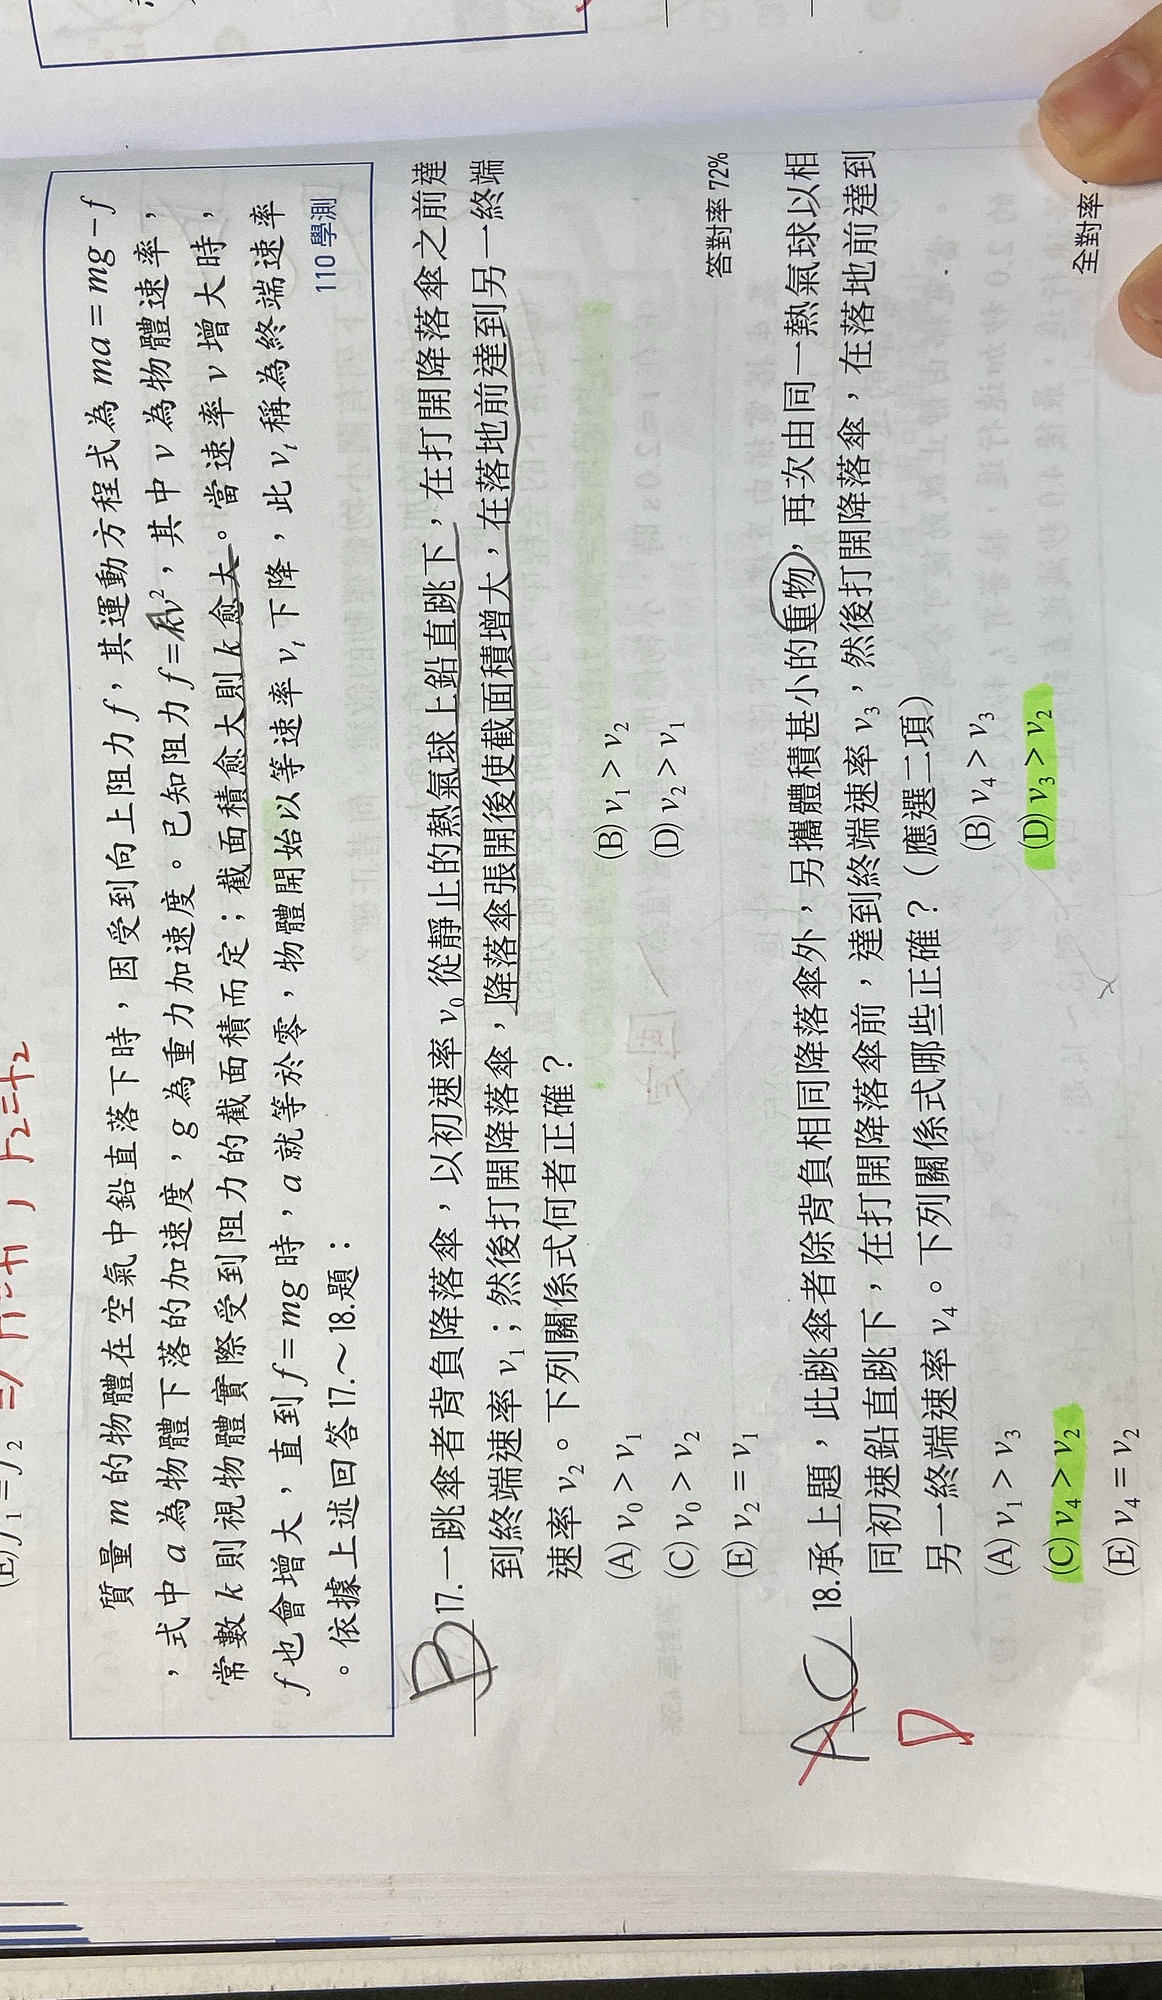 (E) f₁ = f₂
質量 m 的物體在空氣中鉛直落下時，因受到向上阻力 f，其運動方程式為 ma = mg − f
，式中 a 為物體下落的加速度，g 為重力加速度。已知阻力 f = kv²，其中 v 為物體速率，
常數 k 則視物體實際受到阻力的截面積而定；截面積愈大則 k 愈大。當速率 v 增大時，
f 也會增大，直到 f = mg 時，a 就等於零，物體開始以等速率 vₜ 下降，此 vₜ 稱為終端速率
。依據上述回答17.～18.題：
110 學測
B
17.一跳傘者背負降落傘，以初速率 v₀ 從靜止的熱氣球上鉛直跳下，在打開降落傘之前達
到終端速率 v₁；然後打開降落傘，降落傘張開後使截面積增大，在落地前達到另一終端
速率 v₂。下列關係式何者正確？
(A) v₀ > v₁ (B) v₁ > v₂
(C) v₀ > v₂ (D) v₂ > v₁
(E) v₂ = v₁
答對率 72%
AC
D
18.承上題，此跳傘者除背負相同降落傘外，另攜體積甚小的重物，再次由同一熱氣球以相
同初速鉛直跳下，在打開降落傘前，達到終端速率 v₃，然後打開降落傘，在落地前達到
另一終端速率 v₄。下列關係式哪些正確？（應選二項）
(A) v₁ > v₃ (B) v₄ > v₃
(C) v₄ > v₂ (D) v₃ > v₂
(E) v₄ = v₂
全對率